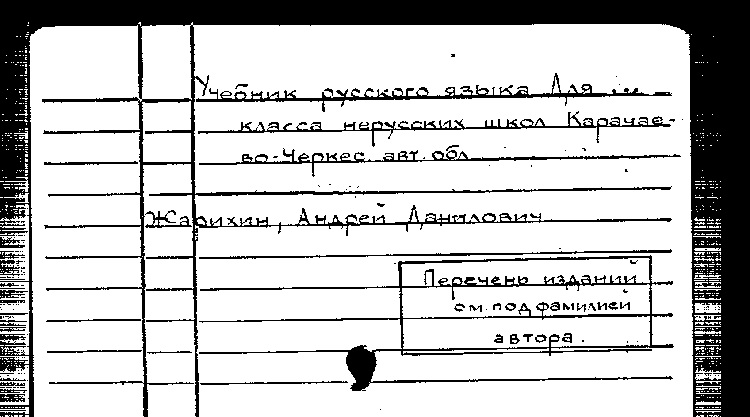 Учебник русского языка Для ... 
класса нерусских школ Карачае-
во-Черкес. авт. обл.
Жарихин, Андрей Данилович
Перечень изданий
см. под фамилией
автора.